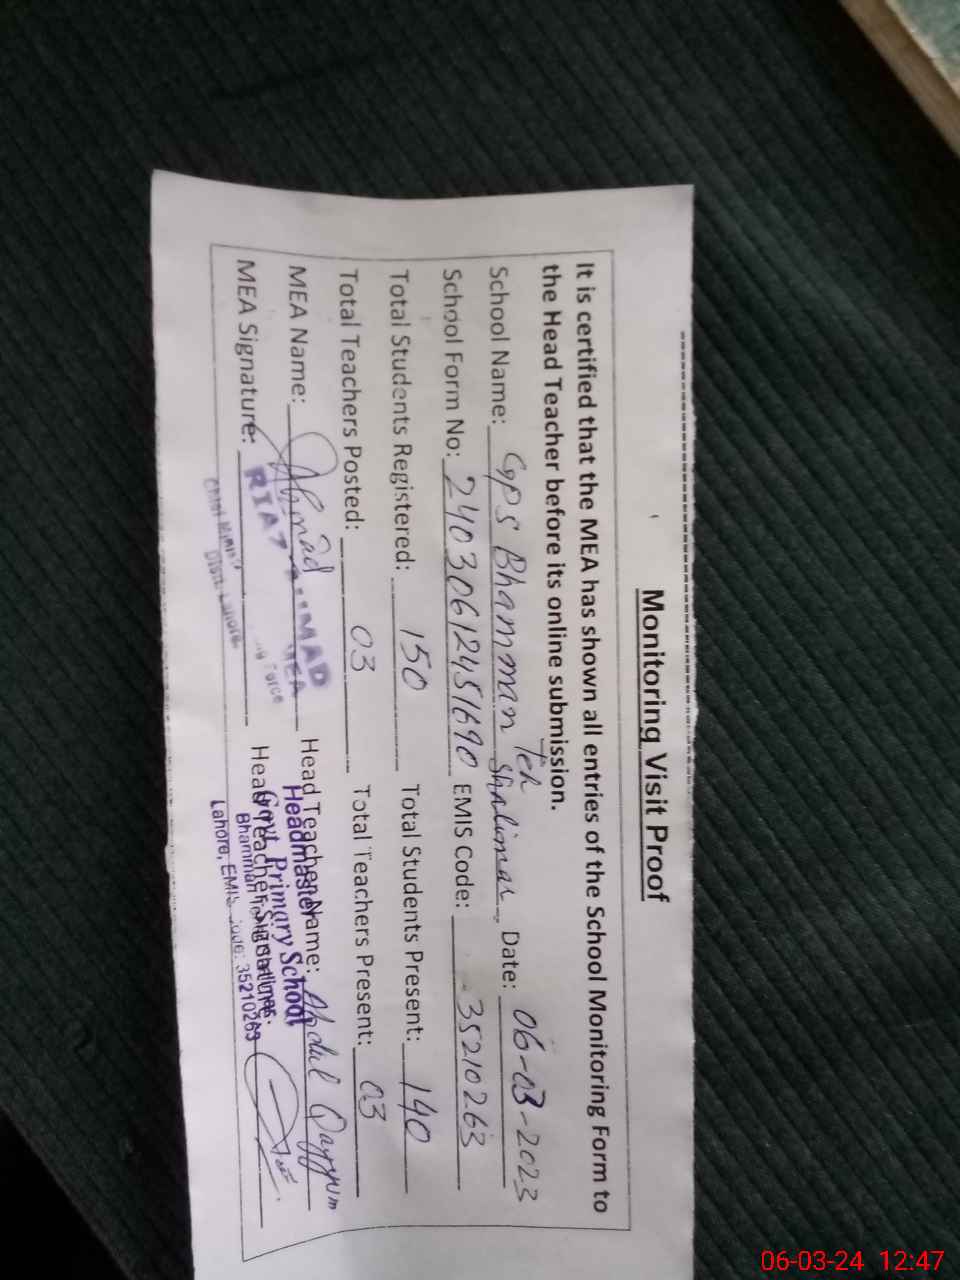 Monitoring Visit Proof
It is certified that the MEA has shown all entries of the School Monitoring Form to
the Head Teacher before its online submission.
School Name: GPS Bhamman Teh Shalimar Date: 06-03-2023
School Form No: 2403061245 1690 EMIS Code: 35210263
Total Students Registered: 150 Total Students Present: 140
Total Teachers Posted: 03 Total Teachers Present: 03
MEA Name: Ahmad Head Teacher Name: Abdul Qayyum
MEA Signature: Head Teacher Signature:
MEA
Headmaster
Govt. Primary School
Bhamman
Lahore, EMIS Code: 35210263
06-03-24 12:47